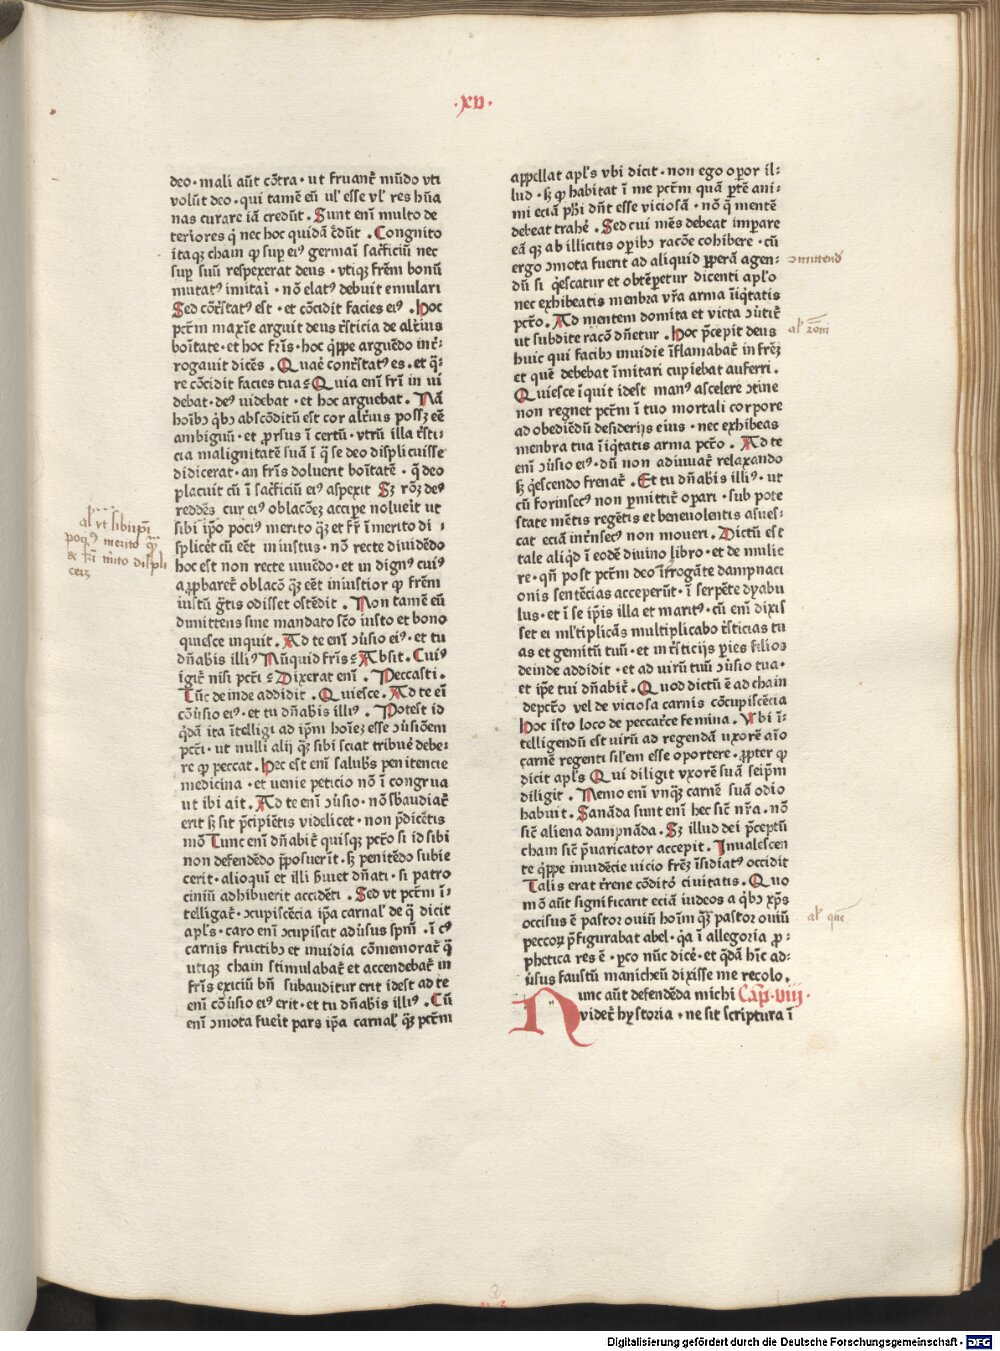 ·xv·
deo · mali aūt cōtra · ut fruant᷑ mūdo vti
volūt deo · qui tamē eū ul᾽ esse vl᾽ res hūa
nas curare iā credūt . Sunt enī multo de
teriores q̇ nec hoc quidā c̄dūt . Congnito
itaqꝫ chain ꝙ sup eiꝰ germaī sac̄ficiū nec
sup suū respexerat deus · vtiqꝫ fr̄em bonū
mutatꝰ imitari · nō elatꝰ debuit emulari
Sed cōtr̄statꝰ est · et cōcidit facies eiꝰ . Hoc
pctm̄ maxīe arguit deus tr̄sticia de alt᷑ius
boītate · et hoc fr̄is · hoc q̇ppe arguēdo int᷑-
rogauit dicēs . Quaē cont᷑statꝰ es · et q̄-
re cōcidit facies tua ? Quia enī fr̄i in ui
debat · deꝰ uidebat · et hoc arguebat . Nā
hoībꝰ q̇bꝰ abscōditū est cor alt᷑ius possꝫ eē
ambiguū · et p̱rsus ī certū · vtrū illa t᷑sti-
cia malignitatē suā ī q̄ se deo displicuisse
didicerat · an fr̄is doluerit boītatē · q̄ deo
placuit cū ī sac̄ficiū eiꝰ aspexit Sꝫ rōꝫ deꝰ
reddēs cur eiꝰ oblacōeꝫ accipe noluerit ut
sibi ip̄o pociꝰ merito q̄ꝫ et fr̄ īmerito di-
splicet᷑ cū eēt iniustus · nō recte diuidēdo
hoc est non recte uiuēdo · et in dignꝰ cuiꝰ
a ꝓbaret᷑ oblacō qꝫ eēt iniustior ꝙ fr̄em
iustū gr̄tis odisset ostēdit . Non tamē eū
dimittens sine mandato sc̄o iusto et bono
quiesce inquit . Ad te enī ↄu̇sio eiꝰ · et tu
dn̄abis illiꝰ Nūquid fr̄is ? Absit . Cuiꝰ
igit᷑ nisi pcti ? Dixerat enī . Peccasti .
Tūc deinde addidit . Quiesce . Ad te eī
cōu̇sio eiꝰ · et tu dn̄abis illiꝰ . Potest id
q̇dā ita ītelligi ad ip̄m hoīeꝫ esse ↄu̇siōem
pcti · ut nulli alij q̄ꝫ sibi sciat tribuē debe-
re ꝙ peccat . Hec est enī salubs̄ penitencie
medicina · et uenie peticio nō ī congrua
ut ibi ait . Ad te enī ↄu̇sio · nō sbaudiat᷑
erit sꝫ sit p̄cipiētis videlicet · non p̄dicētis
mō Tunc enī dn̄abit᷑ quisqꝫ pctō si id sibi
non defendēdo p̄posuerīt · sꝫ penitēdo subie
cerit · alioquī et illi s̄uiet dn̄ati · si patro
ciniū adhibuerit accidēti . Sed vt pctm̄ ī-
telligat᷑ · ↄcupiscēcia ip̄a carnal᾽ de q̄ dicit
apl᾽s · caro enī ↄcupiscit adūsus spm̄ · ī cꝰ
carnis fructibꝰ et inuidia cōmemorat᷑ q̄
utiqꝫ chain stimulabat᷑ et accendebat᷑ in
fr̄is exiciū bn̄ subauditur erit idest ad te
enī cōu̇sio eiꝰ erit · et tu dn̄abis illiꝰ . Cū
enī ↄmota fuerit pars ip̄a carnal᾽ q̄ꝫ pctm̄
appellat apl᾽s vbi dicit · non ego op̱or il-
lud · sꝫ ꝙ habitat ī me pctm̄ quā p̱tē ani-
mi eciā pħi dn̄t esse viciosā · nō q̄ mentē
debeat trahē . Sed cui mēs debeat impare
eā qꝫ ab illicitis op̱ibꝰ racōe cohibere · cū
ergo ↄmota fuerit ad aliquid p̱perā agen-
dū si q̇escatur et obtēp̱etur dicenti apl᾽o
nec exhibeatis menbra vr̄a arma īiq̇tatis
pctō . Ad mentem domita et victa ↄu̇tit᷑
ut subdite racō dn̄etur . Hoc p̄cepit deus
huic qui facibꝰ inuidie īflamabat᷑ in fr̄eꝫ
et quē debebat īmitari cupiebat auferri .
Quiesce īquit idest manꝰ ascelere ↄtine
non regnet pctm̄ ī tuo mortali corpore
ad obediēdū desiderijs eius · nec exhibeas
menbra tua īiq̇tatis arma pctō . Ad te
enī ↄu̇sio eiꝰ · dū non adiuuat᷑ relaxando
sꝫ q̇escendo frenat᷑ . Et tu dn̄abis illiꝰ · ut
cū forinsecꝰ non p̱mittit᷑ op̱ari · sub pote
state mētis regētis et beneuolentis asues-
cat eciā int᷑nsecꝰ non moueri . Dictū est
tale aliq̇d ī eodē diuino libro · et de mulie
re · qn̄ post pctm̄ deo īt᷑rogāte dampnaci
onis sentēcias acceperūt · ī serpēte dyabu
lus · et ī se ip̄is illa et maritꝰ · cū enī dixis
set ei ml᾽tiplicās multiplicabo t᷑sticias tu
as et gemitū tuū · et in t᷑sticijs p̱ies filios
deinde addidit · et ad virū tuū ↄu̇sio tua ·
et ip̄e tui dn̄abit᷑ . Quod dictū ē ad chain
depctō vel de viciosa carnis cōcupiscēcia
hoc isto loco de peccat᷑ce femina . Vbi ī-
telligendū est virū ad regendā uxorē aīo
carnē regenti sil᾽em esse oportere . ꝓpter ꝙ
dicit apl᾽s Qui diligit vxorē suā seip̄m
diligit . Nemo enī vnq̄ꝫ carnē suā odio
habuit . Sanāda sunt enī hec sic̄ nr̄a · nō
sic̄ aliena dampnāda . Sꝫ illud dei p̄ceptū
chain sic̄ p̄uaricator accepit . Inualescen
te q̇ppe inuidēcie vicio fr̄eꝫ īsidiatꝰ occidit
Talis erat t᷑rene cōditō civitatis . Quo
mō aūt significarit eciā iudeos a q̇bꝰ xp̄s
occisus ē pastor ouiū hoīm q̄ꝫ pastor ouiū
peccoꝝ p̄figurabat abel · q̇a ī allegoria ꝓ-
phetica res ē · p̱co nūc dicē · et q̇dā hīc ad-
u̇sus faustū manicheū dixisse me recolo .
Nunc aūt defendēda michi Cap̄·viij·
videt᷑ hystoria · ne sit scriptura ī
al᾽ ut sibi ip̄i
poqꝰ merito q̄ꝫ
& fr̄i īmito displi
cerꝫ
ↄmittend᾽
al᾽ rōni
al᾽ que
Digitalisierung gefördert durch die Deutsche Forschungsgemeinschaft - DFG